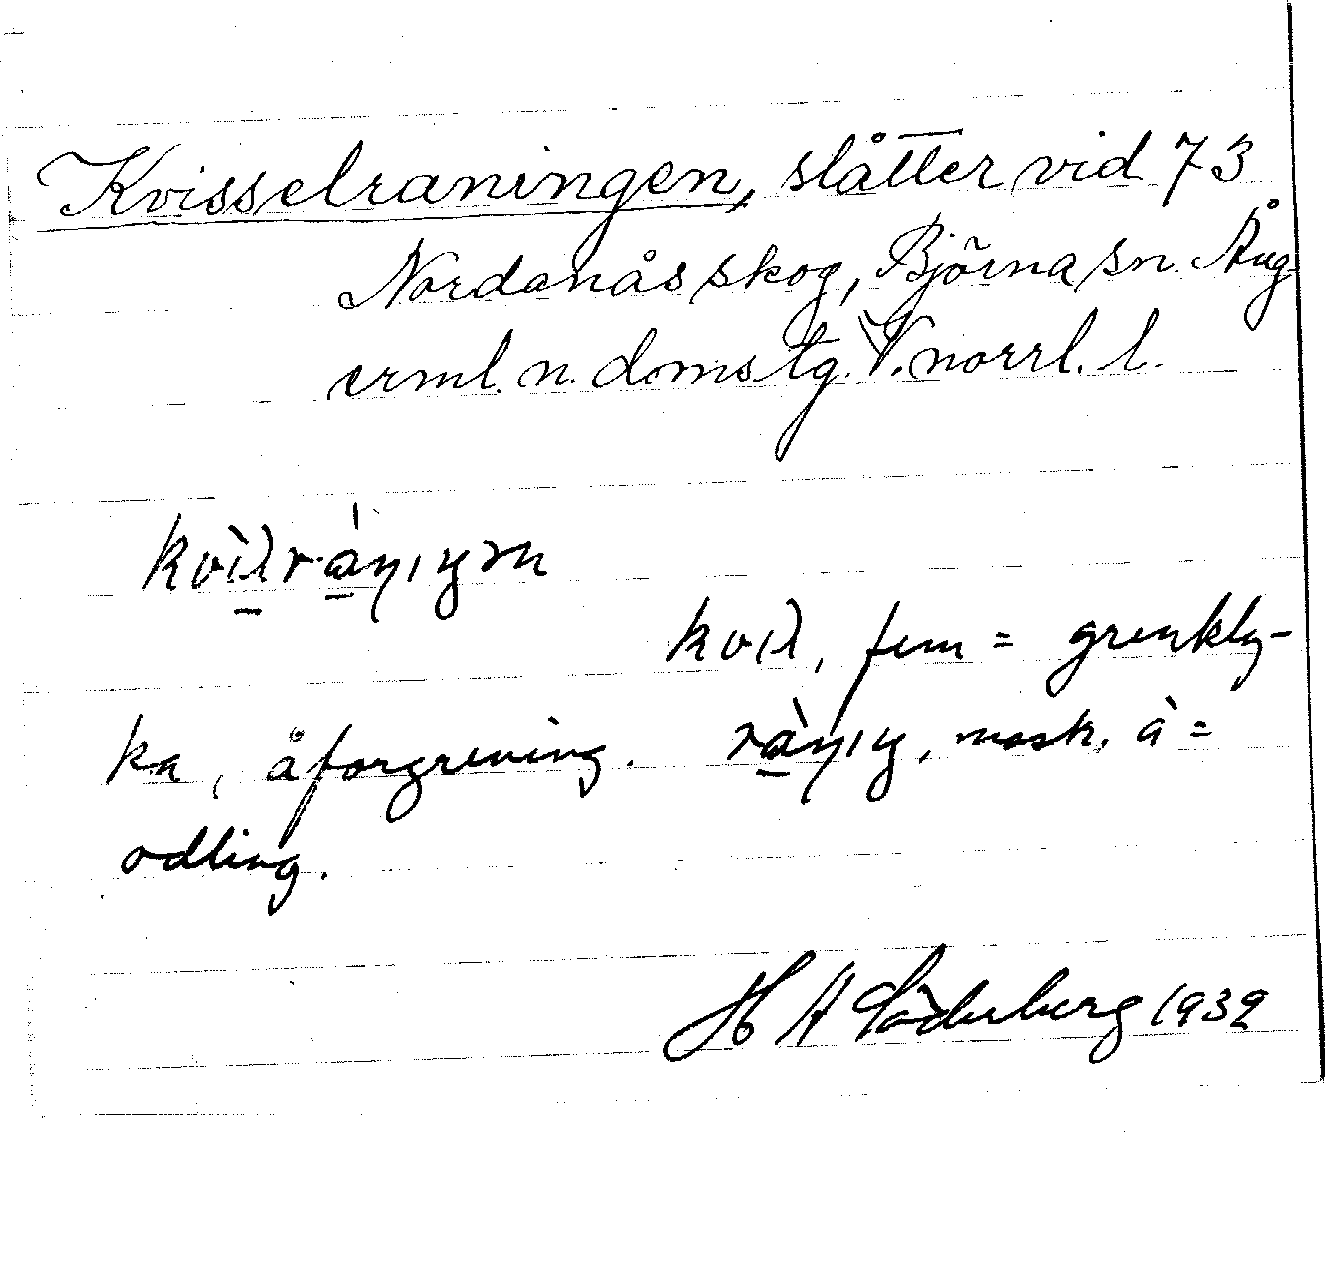 Kvisselraningen, slåtter vid 73
Nordanås skog, Björna sn. Ång
erml. n. domstg. V. norrl. l.
kvil, fem = grenkly-
ka, åforgrening. mask. å =
odling.
H A Söderberg 1932